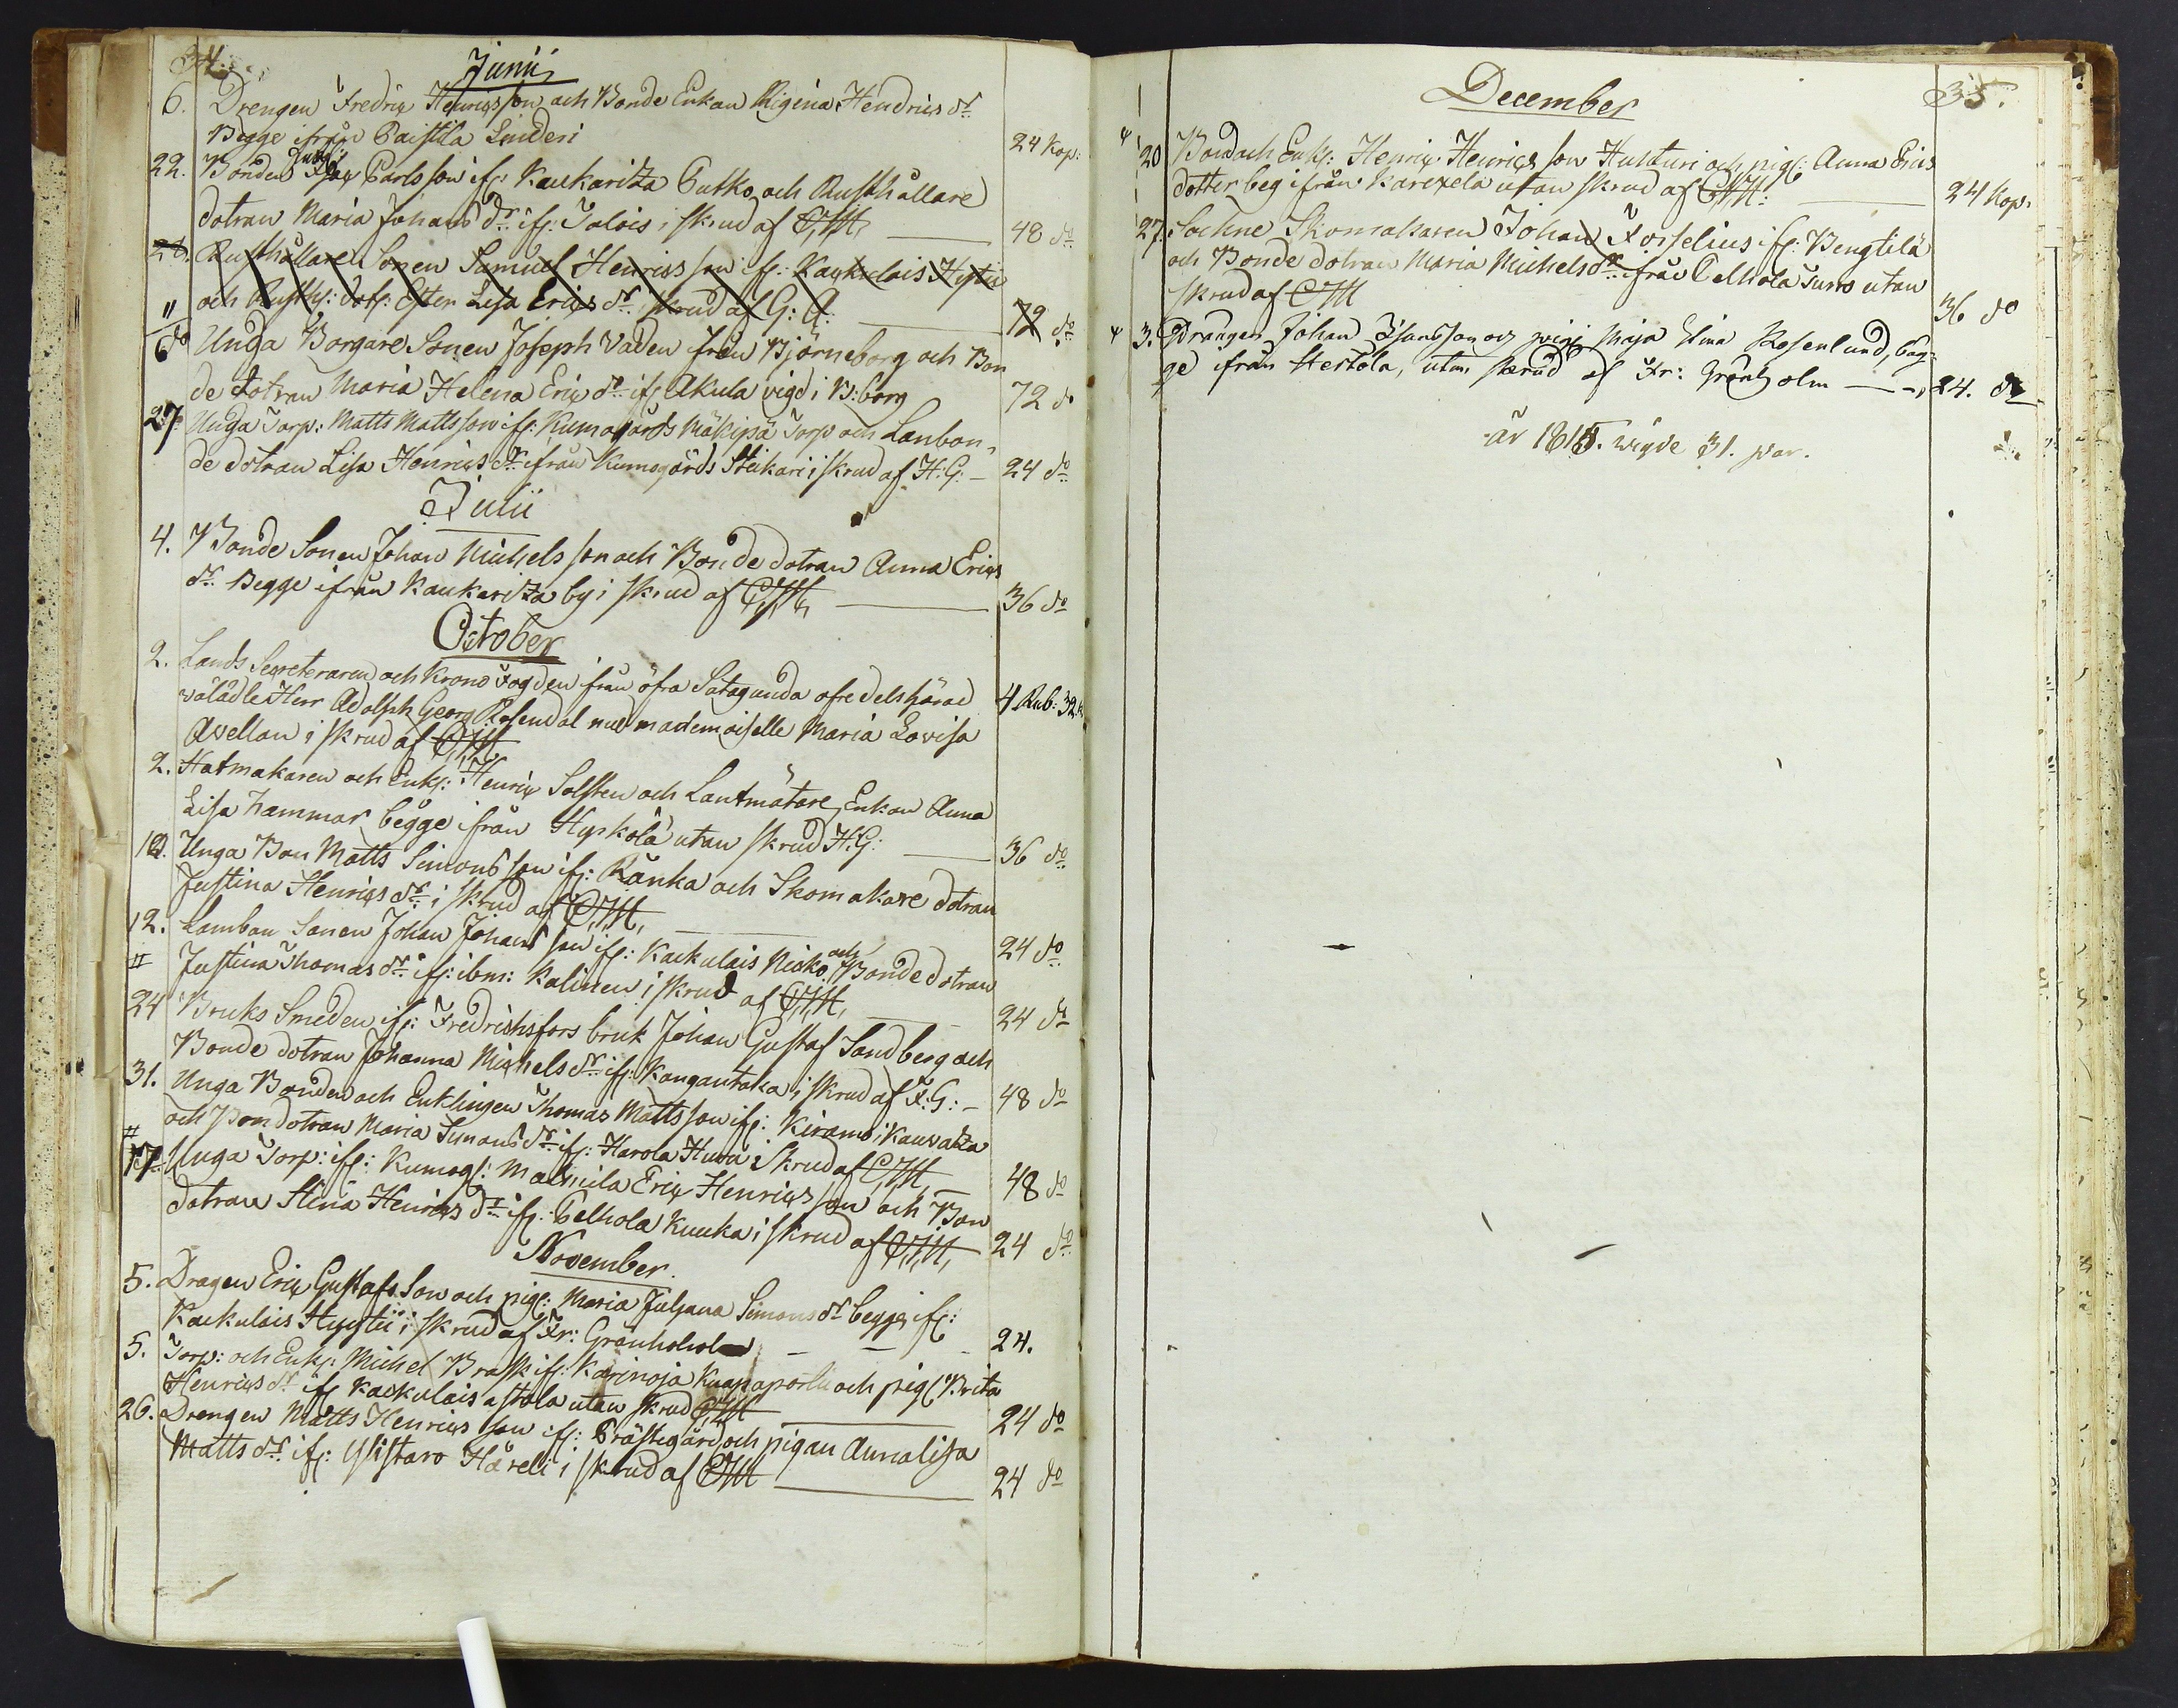 34.
Junii
6. Drengen Fredrix Henrixsson och Bonde Enkan Rigina Hendrics dr
Begge ifrån Paistila Sinderi 24 Kop:
22. Bondens Isax Carlsson ifr: Kaukaritza Putko och Rusthållare
dotran Maria Johans dr ifr: Talois i skrud af C,M, 48 do
Rusthållare Sonen Samuel Henrixsson ifr: Kaukulais Hytti
och Rusth: dotr: Ester Lisa Erixs dr skrud af G: A: 72 do
6 do Unga Borgare Sonen Joseph Vaden från Björneborg och Bon
de dotran Maria Helena Erix dr ifr Akula vigd i B:borg 72 do
27 Unga Torp: Matts Mattsson ifr: Kumogårds Mäkipä Torp och Lanbon-
de dotran Lisa Henrixs dr ifrån Kumogårds Steikari i skrud af H: G: 24 do
Julii
4. Bonde Sonen Johan Michelsson och Bonde dotran Anna Erixs
dr Begge ifrån Kaukaritza by i skrud af C,M, 36 do
October
2. Lands Secreteraren och Krono Fogden från öfra Satagunda ofredelshärad
wälädle Herr Adolph Georg Rosendal med mademoiselle Maria Lovisa 4 Rub: 32 k
Avellan i skrud af C,M
2. Hatmakaren och Enkl: Henrix Solsten och Lantmätare Enkan Anna
Lisa Hammar begge ifrån Hyrkölä utan skrud H:G: 36 do
10. Unga Bon Matts Simonsson ifr: Ränka och Skomakare dotran
Justina Henrixs dr i skrud af C,M, 24 do
12. Lambon Sonen Johan Johansson ifr: Kaukulais Nicko och Bonde dotran
Justina Thomas dr ifr: ibm: Kalinen i skrud af C,M, 24 do
24 Bruks Smeden ifr: Fredrichsfors bruk Johan Gustaf Sandberg och
Bonde dotran Johanna Michels dr ifr: Kangantaka i skrud af F:G: 48 do
31. Unga Bonden och Enklingen Thomas Mattsson ifr: Kiramo i Kauvatza
och Bondotran Maria Simons dr ifr: Harola Huva i Skrud af C,M, 48 do
17. Unga Torp: ifr: Kumog: Malmila Erix Henrixsson och Bon
dotran Stina Henrixs dr ifr: Pelhola Kuuka i skrud af C,M, 24 do
November
5. Dragen Erix Gustafs Son och pig: Maria Juljana Simons dr begge ifr:
Kaukulais Hyytii i skrud af Fr: Grönholm 24.
5. Torp: och Enkl: Michel Brask ifr: Karinoja Knaparportu och pig: Brita
Henrixs dr ifr Kaukulais astala utan skrud C,M 24 do
26. Drengen Matts Henrixsson ifr: Prästegård och pigan Annalisa
Matts dr ifr: Ylistaro Häreli i skrud af C,M 24 do
December
35.
20 Bond och Enkl: Henrix Henrixsson Huhturi och pig: Anna Erics
dotter beg ifrån Karixela utan skrud af C,M: 24 Kop:
27. Sochne Skomakaren Johan Forselius ifr: Bengtilä
och Bonde dotran Maria Michels dr ifrån Pelhola Juns utan
skrud af C,M 36 do
3. Drängen Johan Johansson och pigi Maja Stina Rosenlund, bäg-
ge ifrån Hertola, utan skrud af Fr: Grönholm 24. do
år 1815. wigde 31. par.